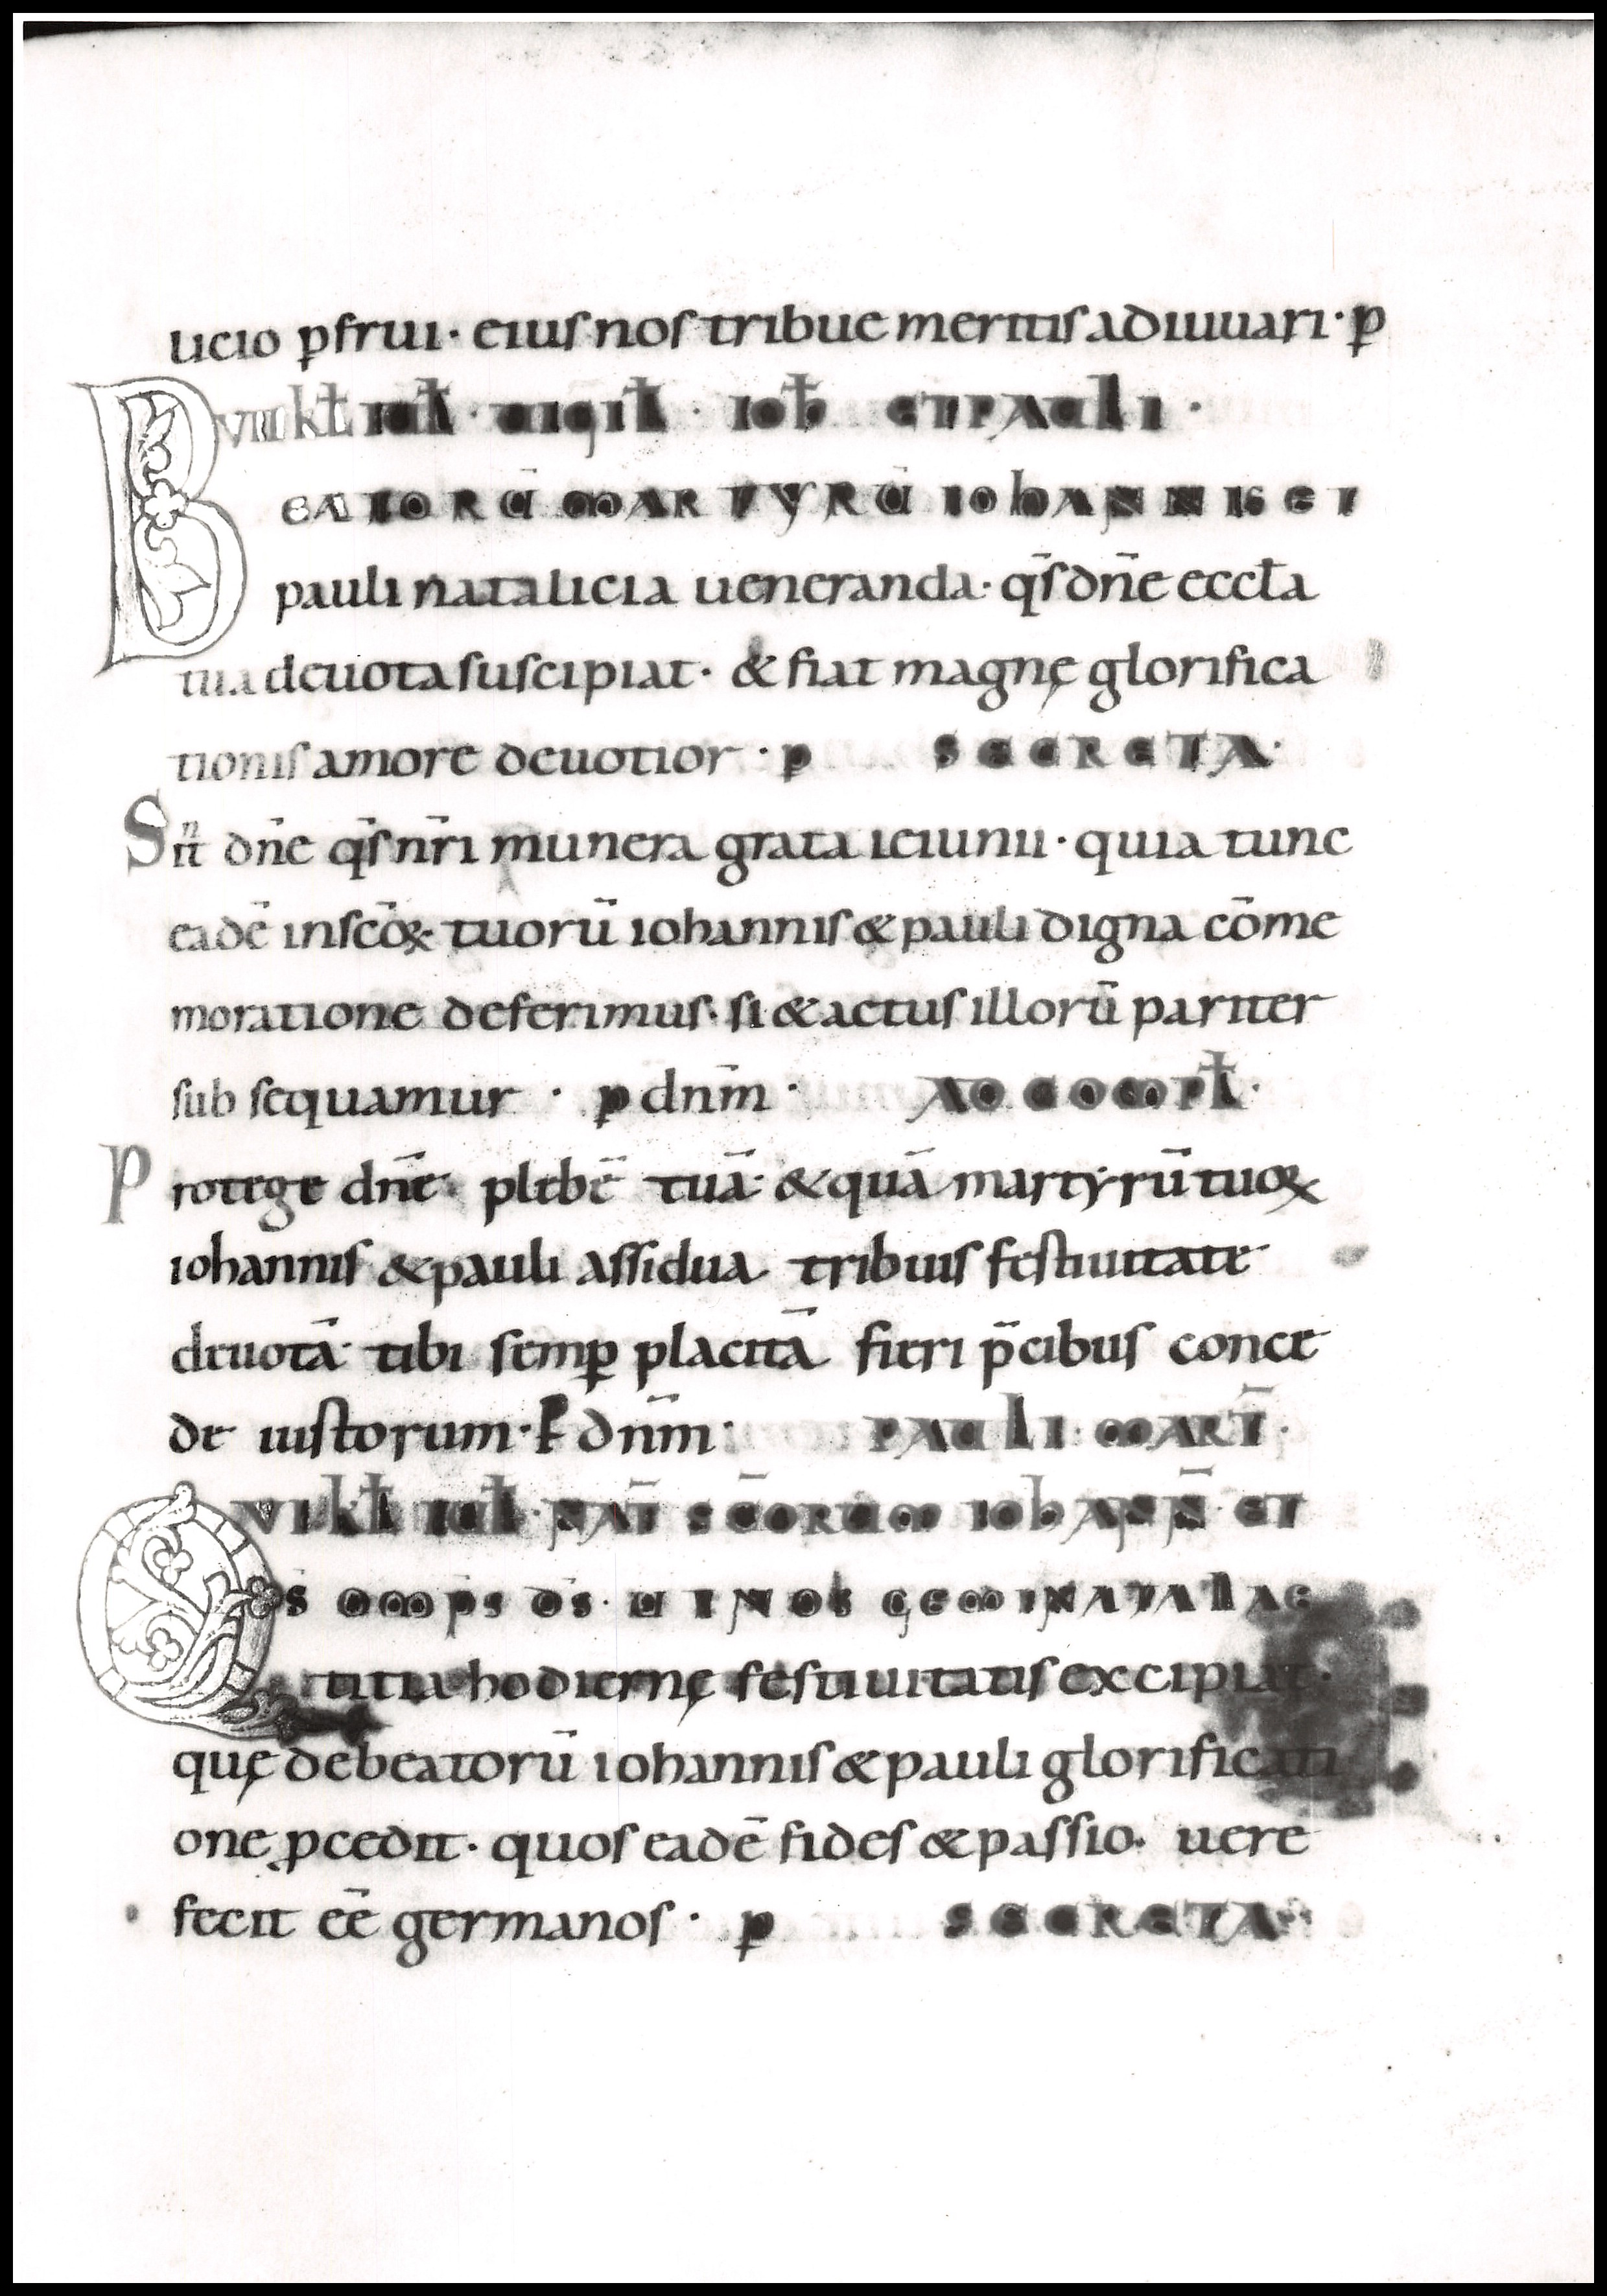 uicio ꝑfrui· eiuſ noſ tribue meritiſ adiuuari· ꝑ
VII kł iuł· uigił· ioħ ETPAULI·
BEATORŪ MARTYRŪ IOHANNIS ET
pauli natalicia ueneranda· q̄ſ dn̄e eccła
tua deuota ſuſcipiat· & fiat magnę glorifica
tioniſ amore deuotior· ꝑ SECRETA·
Sīt dn̄e q̄ſ nr̄i munera grata ieiunii· quia tunc
eadē inſcōꝝ tuorū iohanniſ & pauli digna cōme
moratione deferimuſ· ſi & actuſ illorū pariter
ſub ſequamur· ꝑ dnm̄· AD COMPŁ·
Protege dn̄e plebē tuā· & quā martyrū tuoꝝ
iohanniſ & pauli aſſidua tribuiſ feſtiuitate
deuotā· tibi ſemꝑ placitā fieri p̄cibuſ conce
de iuſtorum· P dnm̄· PAULI MART̄·
VI kł IUŁ· NAT̄ SCŌRUM IOHANN̄ ET
QS OMPS DS· UT NOS GEMINATA LAE
titia hodiernę feſtiuitatiſ excipiat·
quę debeatorū iohanniſ & pauli glorificati
one ꝓcedit· quoſ eadē fideſ & paſſio· uere
fecit eē germanoſ· ꝑ SECRETA·